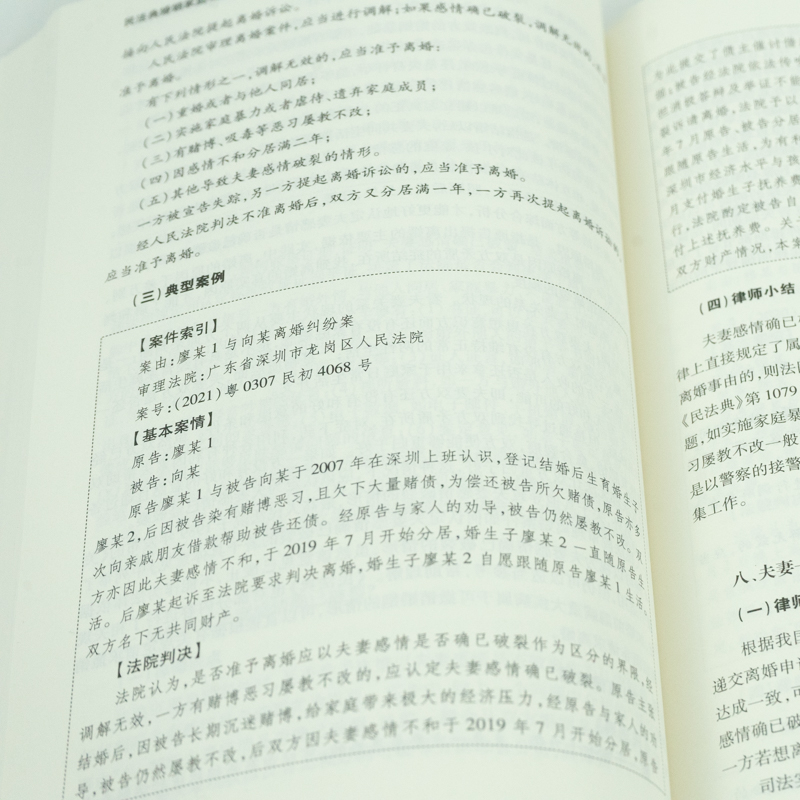 民法典婚姻家庭
接向人民法院提起离婚诉讼。
人民法院审理离婚案件，应当进行调解；如果感情确已破裂，调解无效的，
准予离婚。
有下列情形之一，调解无效的，应当准予离婚：
(一)重婚或者与他人同居；
(二)实施家庭暴力或者虐待、遗弃家庭成员；
(三)有赌博、吸毒等恶习屡教不改；
(四)因感情不和分居满二年；
(五)其他导致夫妻感情破裂的情形。
一方被宣告失踪，另一方提起离婚诉讼的，应当准予离婚。
经人民法院判决不准离婚后，双方又分居满一年，一方再次提起离婚诉讼的，
应当准予离婚。
(三)典型案例
【案件索引】
案由：廖某1与向某离婚纠纷案
审理法院：广东省深圳市龙岗区人民法院
案号：(2021)粤0307民初4068号
【基本案情】
原告：廖某1
被告：向某
原告廖某1与被告向某于2007年在深圳上班认识，登记结婚后生育婚生子
廖某2，后因被告染有赌博恶习，且欠下大量赌债，为偿还被告所欠赌债，原告亦多
次向亲戚朋友借款帮助被告还债。经原告与家人的劝导，被告仍然屡教不改。双
方亦因此夫妻感情不和，于2019年7月开始分居，婚生子廖某2一直随原告生
活。后廖某起诉至法院要求判决离婚，婚生子廖某2自愿跟随原告廖某1生活。
双方名下无共同财产。
【法院判决】
法院认为，是否准予离婚应以夫妻感情是否确已破裂作为区分的界限，经
调解无效，一方有赌博恶习屡教不改的，应认定夫妻感情确已破裂。原告主张
结婚后，因被告长期沉迷赌博，给家庭带来极大的经济压力，经原告与家人的劝
导，被告仍然屡教不改，后双方因夫妻感情不和于2019年7月开始分居，原告
为此提交了债主催讨借
被告经法院依法传
把消极答辩及举证不能
裂诉请离婚，法院予以
年7月原告、被告分居
跟随原告生活，为有利
深圳市经济水平与孩
月支付婚生子抚养费
行，法院酌定被告自
付上述抚养费。关
双方财产情况，本案
(四)律师小结
夫妻感情确已
律上直接规定了属
离婚事由的，则法
《民法典》第1079
题，如实施家庭暴
习屡教不改一般
是以警察的接警
集工作。
八、夫妻一
(一)律师
根据我国
递交离婚申
达成一致，可
感情确已破
一方若想离
司法实